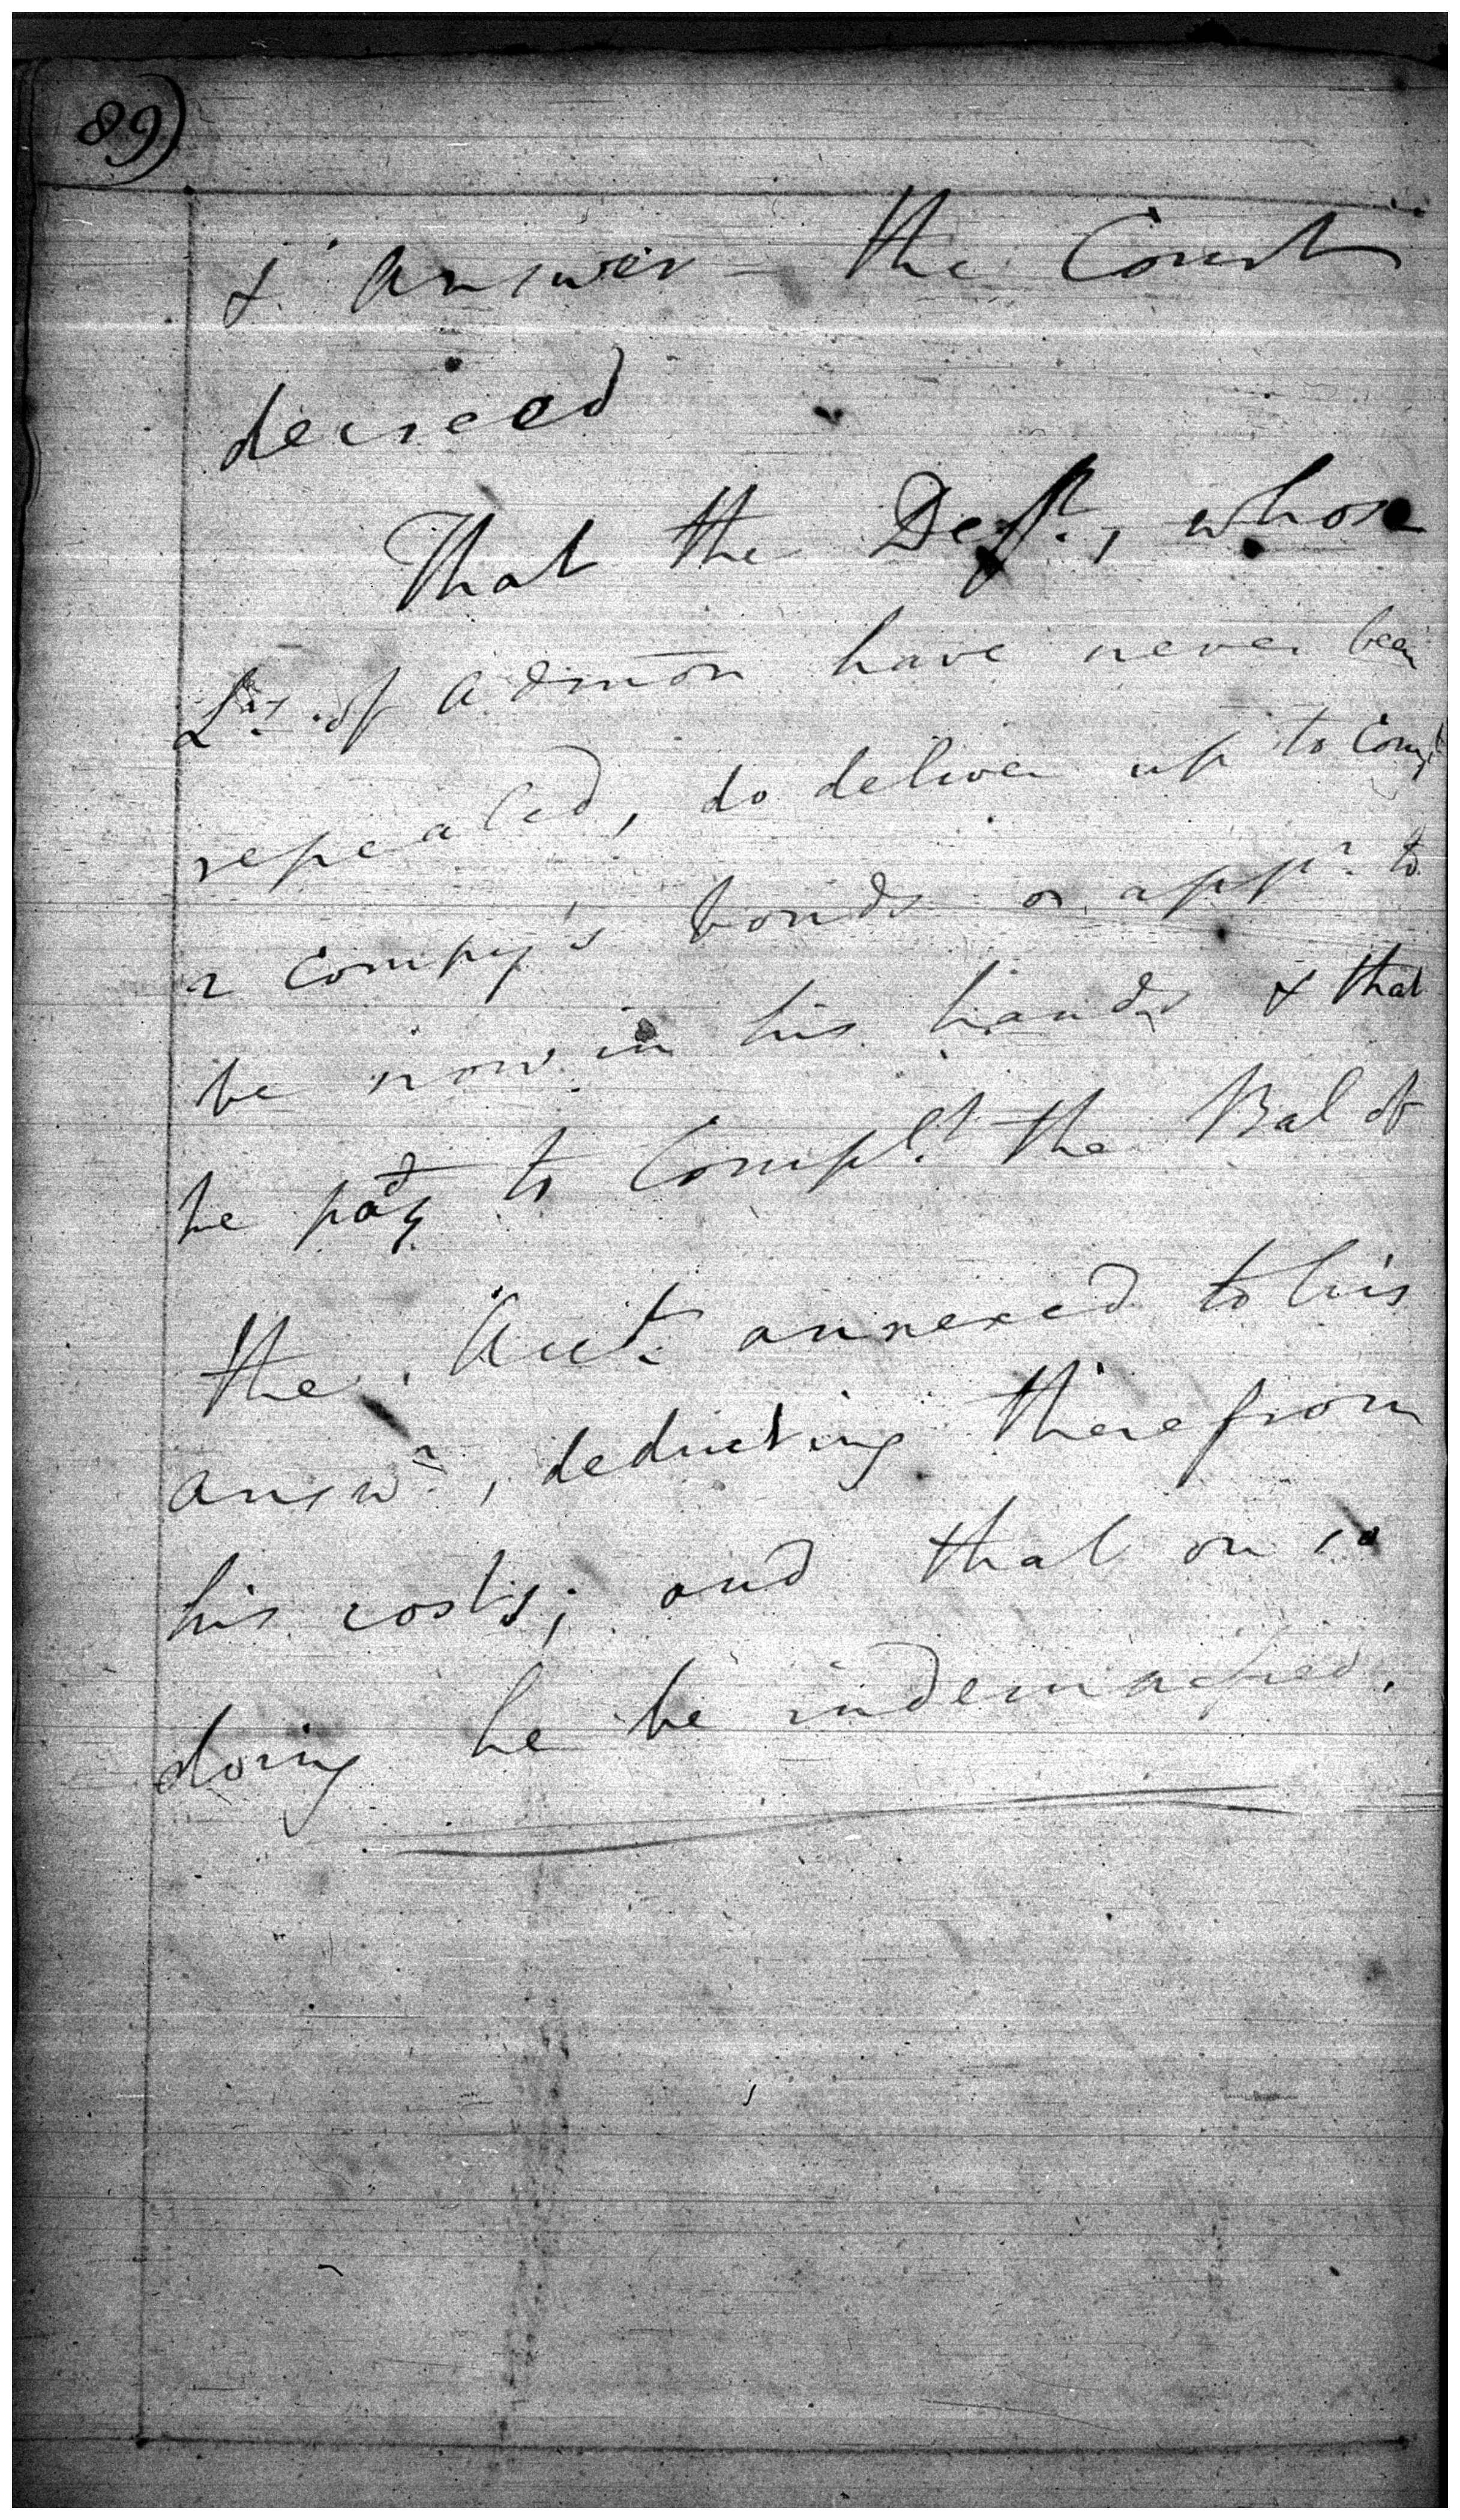 89)
& answer – the Court
decreed
That the Deft., whose
Lrs. of Admōn have never been
repealed, do deliver up to Compt
2 Compy's bonds as appr. to
be now in his hands & that
he pay to Complt. the Bal of
the Acct. annexed to his
answr., deducting therefrom
his costs; and that on so
doing he be indemnified.